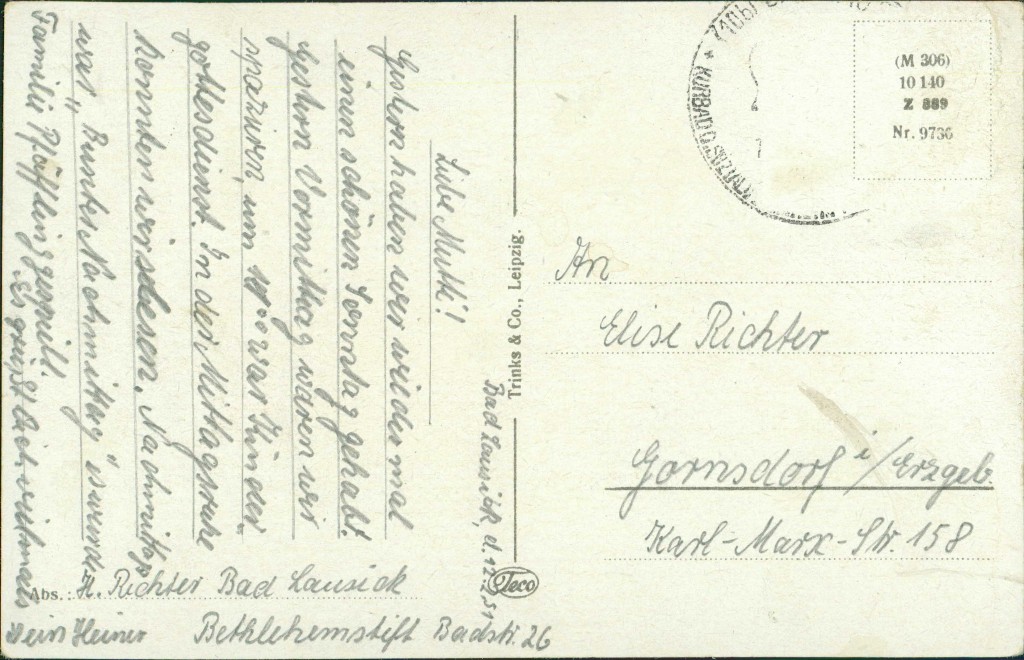 Bad Lausick, d.
Liebe Mutti!
Gestern haben wir wieder mal
einen schönen Sonntag gehabt.
Gestern Vormittag waren wir
spazieren, um 11⁰⁰ war Kinder
gottesdienst. In der Mittagsruhe
konnten wir lesen. Nachmittags
war „Buntes Nachmittag" wurde
Familie Pfäffling gespielt.
Es grüßt Dich vielmals
Dein Heiner
Abs.: H. Richter Bad Lausick
Bethlehemstift Badstr. 26
Trinks & Co., Leipzig.
Teco
KURBAD
(M 306)
10 140
Z 889
Nr. 9736
An
Elise Richter
Gornsdorf i/Erzgeb.
Karl-Marx-Str. 158